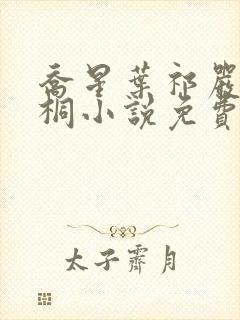 喬星葉祁嚴
桐小說免費
太子霽月